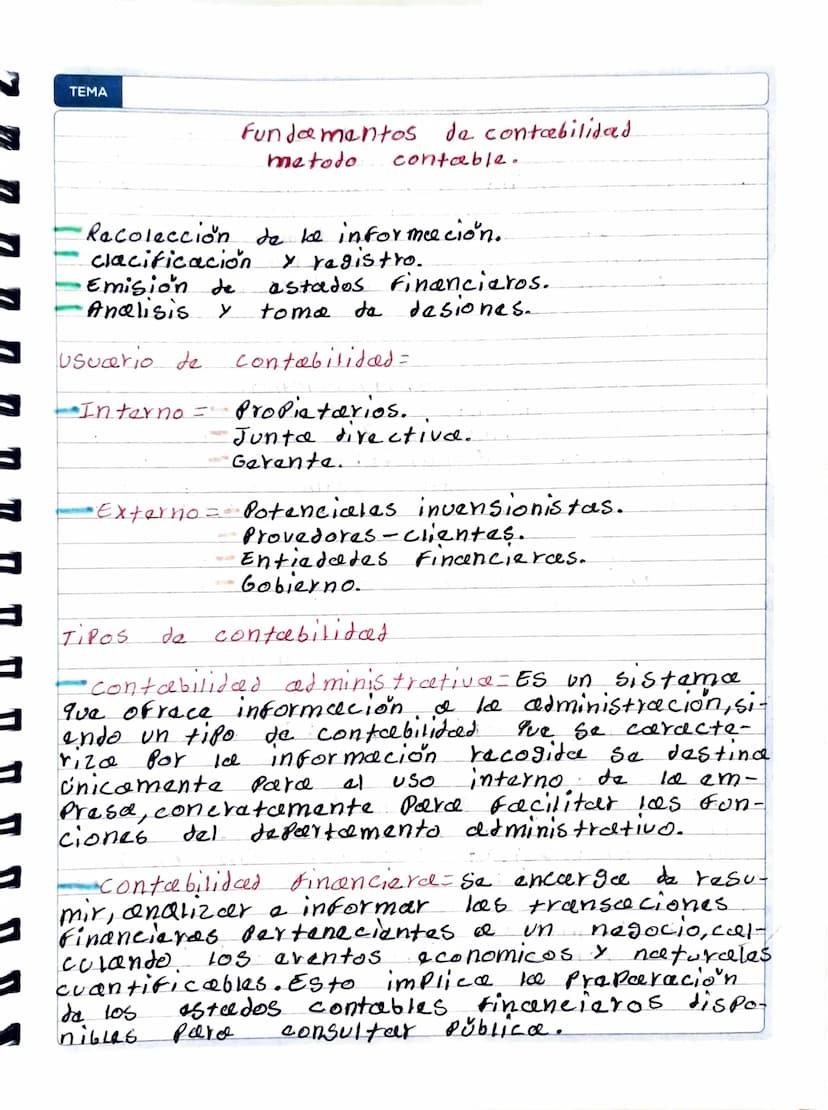 TEMA
Fundamentos de contabilidad
metodo contable.
Recolección de la información.
clacificación y registro.
Emisión de estados financieros.
Analisis y toma de desiones.
usuario de contabilidad=
Interno = Propietarios.
Junta directiva.
Gerente.
Externo = Potenciales invensionistas.
Provedores-clientes.
Entiedades financieras.
Gobierno.
Tipos de contabilidad
contabilidad administrativa= Es un sistema
que ofrece información a la administración, si-
endo un tipo de contabilidad que se caracte-
riza por la información recogida se destina
únicamente para el uso interno de la em-
presa, concretamente para facilitar las fun-
ciones del departamento administrativo.
contabilidad financiera= se encarga de resu-
mir, analizar e informar las transaciones
financieras pertenecientes a un negocio, cal-
culando los eventos economicos y naturales
cuantificables. Esto implica la preparación
de los estados contables financieros dispo-
nibles para consultar pública.